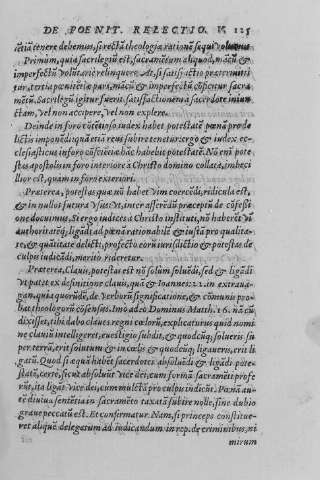 DE POENIT. RELECTIO. V. 125
ictiā tenere debemus, si rectā theologiæ rationē sequi volumus
Primum, quia sacrilegiū est, sacramētum aliquod, mācū &
imperfectū volūtariè relinquere. At, si satisfactio prætermitti
tur, tertia pœnitētiæ pars, mācū & imperfectū cōficitur sacra
mētū. Sacrilegū igitur fuerit satisfactionem à sacerdote iniun
ctam, vel non accipere, vel non explere.
Deinde in foro cōtētioso iudex habet potestatē pœnā pro de
lictis imponēdi: quā etiā reus subire tenetur: ergo & iudex ec-
clesiasticus in foro cōsciētiæ hāc habebit potestatē. Nō em̄ pote
stas apostolis in foro interiore à Christo domino collata, imbeci
llior est, quàm in foro exteriori.
Præterea, potestas quæ nō habet vim coercēdi, ridicula est,
& in nullos futura vsus: vt, inter afferēdū præceptū de cōfessi
one docuimus. Si ergo iudices à Christo instituti, nō haberēt vt
authoritatē, ligādi ad pœnā rationabilē & iusta pro qualita-
te, & quātitate delicti, profectò eorū iurisdictio & potestas de
culpis iudicādi, meritò rideretur.
Præterea, Clauis, potestas est nō solùm soluēdi, sed & ligādi
vt patet ex definitione clauis, quæ & Ioannes: 22. in extraua-
gan. quia quorūdā, de verborū significatione, & cōmunis pro-
bat theologorū cōsensus. Imò adeò Dominus Matth. 16. nā cū
dixisset, tibi dabo claues regni cælorū, explicaturus quid nomi
ne clauiū intelligeret, è uestigio subdit, & quodcūq; solueris su
per terrā, erit solutum & in cælis & quodcūq; ligaueris, erit li
gatū. Quod si æquā habēt sacerdotes absoluēdi & ligādi pote-
statē, certè, sicut absoluūt vice dei, cum formā sacramēti profe-
rūt, ita ligāt vice dei, cum mulctā pro culpis indicūt. Pœnā au-
tē diuina sentētia in sacramēto taxatā subire nolle, sine dubio
graue peccatū est. Et confirmatur. Nam, si princeps constitue-
ret aliquē delegatum ad iudicandum in rep. de criminibus, ni
mirum